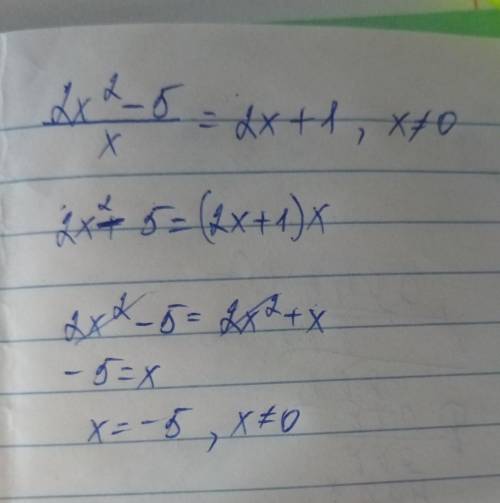 (2x² - 5)/x = 2x + 1, x ≠ 0
2x² - 5 = (2x + 1)x
2x² - 5 = 2x² + x
- 5 = x
x = -5, x ≠ 0